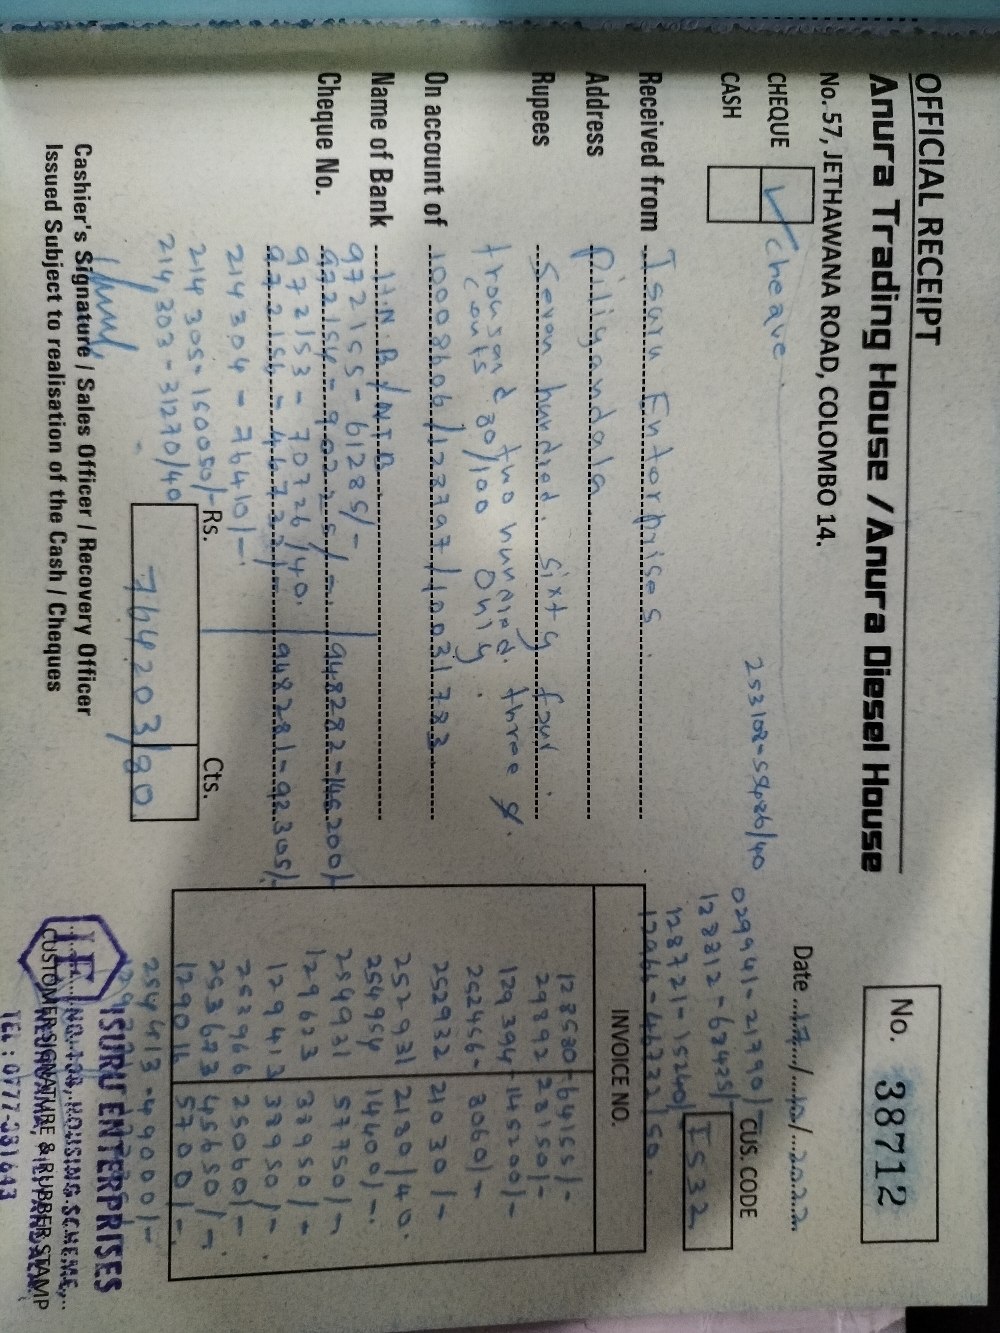 OFFICIAL RECEIPT
Anura Trading House / Anura Diesel House
No. 57, JETHAWANA ROAD, COLOMBO 14.
No. 38712
CHEQUE ✓ cheave.
CASH
Date 17/10/2022
CUS. CODE
IS32
253108-55026/40
029941-21790/-
128812-68425/-
128721-15240/-
12966-46732/50.
Received from Isaru Enterprises.
Address Piliyandala
Rupees Seven hundred. sixty four.
trousand two hundred. three &.
couts 80/100 only.
On account of 10008606/128797/10031783
Name of Bank H.N.B/NTB
Cheque No.
972155-61285/-
972154-90225/-
972153-70726/40.
972156-46727/-
214304-76410/-
214305-150050/-
214303-31270/40
948282-145200/-
948281-92305/-
INVOICE NO.
128580-64155/-
29892 28150/-
129394 145200/-
252456-30601/-
252932 21030/-
252931 2180/40.
254954 14400/-.
254931 57750/-
129623 33950/-
129413 33950/-
253966 25060/-
253673 45650/-
129016 5700/-
254413-49000/-
Rs. Cts.
764203/80
Cashier's Signature / Sales Officer / Recovery Officer
Issued Subject to realisation of the Cash / Cheques
IE
ISURU ENTERPRISES
HOUSING SCHEME,
CUSTOMER SIGNATURE & RUBBER STAMP
TEL : 0777-331643